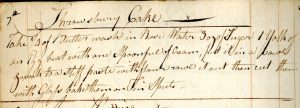 Shrowsbury Cake
Take ¾ of Butter wash in Rose Water 3 oz Sugar 1 Yolk of
an Egg beat with one Spoonful of Cream, put it in a
quite to a stiff paste with flower rowl it out then cut them
with Glass Bake them on Tin